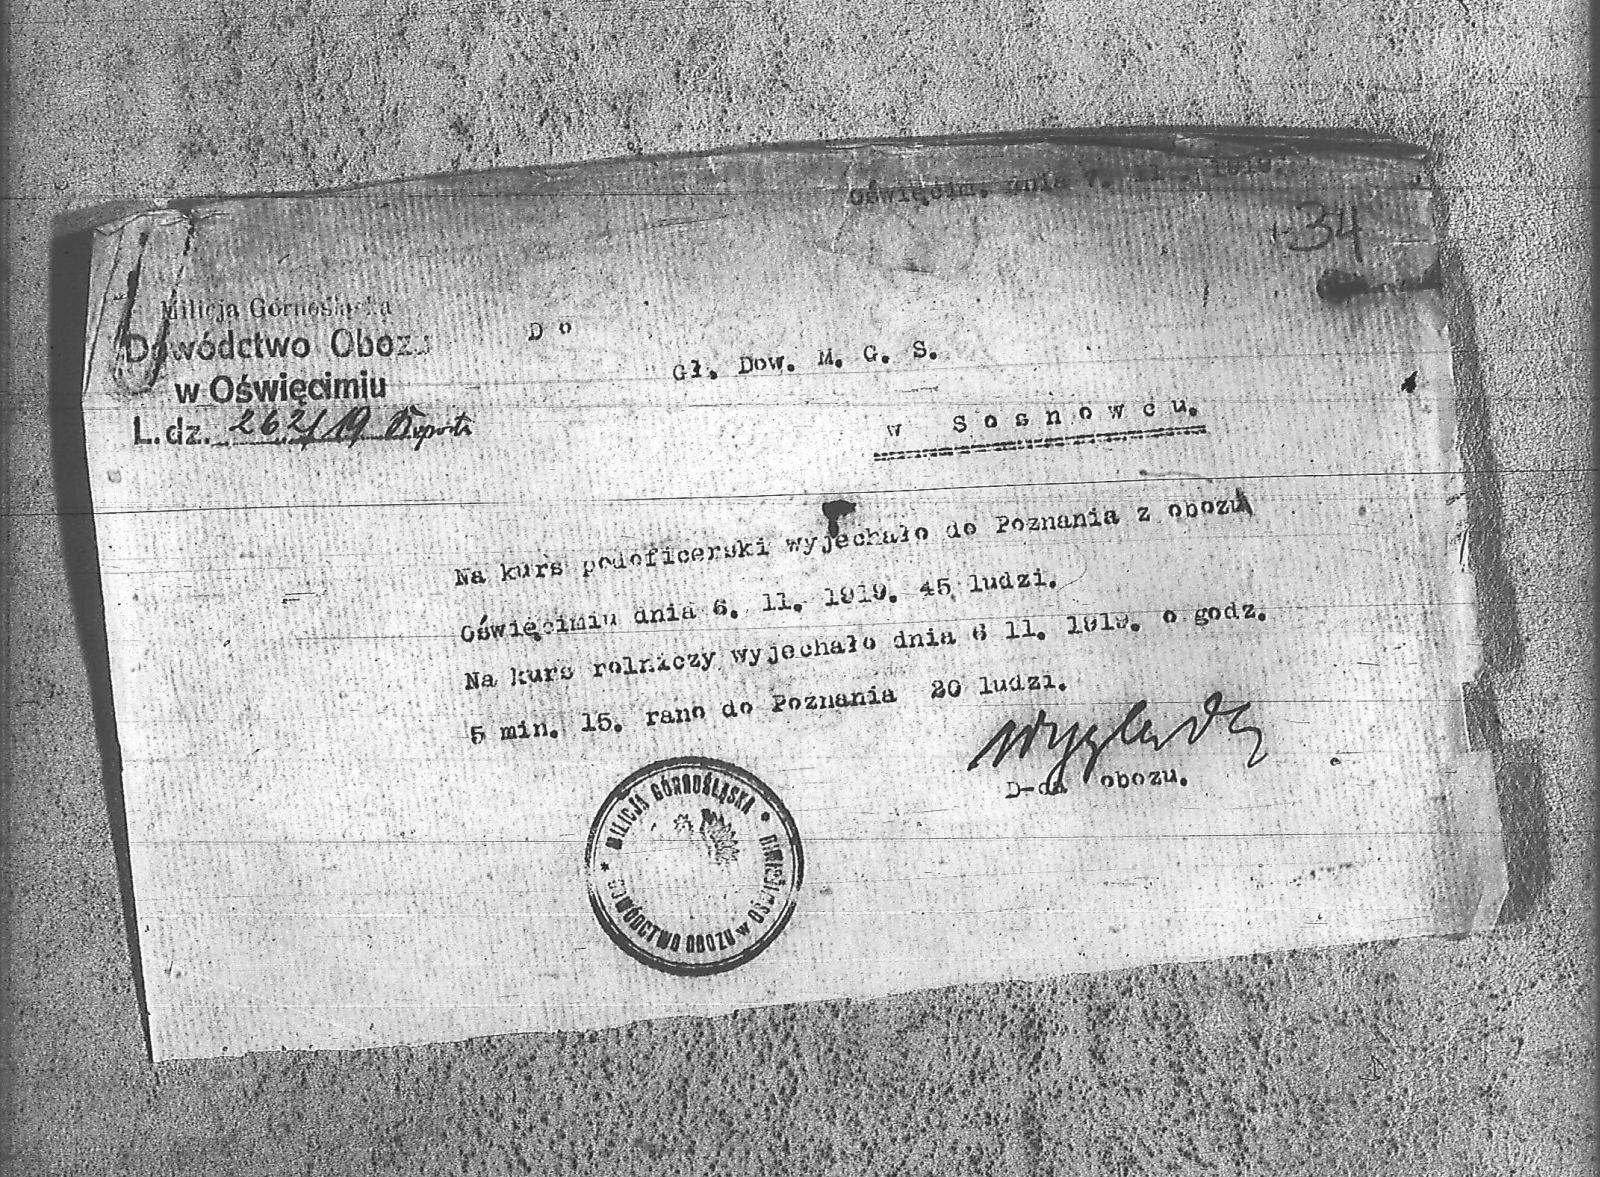 Oświęcim. dnia 7. 11. 1919.
34
Milicja Górnośląska
Dowództwo Obozu
w Oświęcimiu
L. dz. 262/19
Do
Gł. Dow. M. G. S.
w Sosnowcu.
Na kurs podoficerski wyjechało do Poznania z obozu
Oświęcimiu dnia 6. 11. 1919. 45 ludzi.
Na kurs rolniczy wyjechało dnia 6 11. 1919. o godz.
5 min. 15. rano do Poznania 20 ludzi.
D-da obozu.
MILICJA GÓRNOŚLĄSKA
DOWÓDCTWO OBOZU w OŚWIĘCIMIU